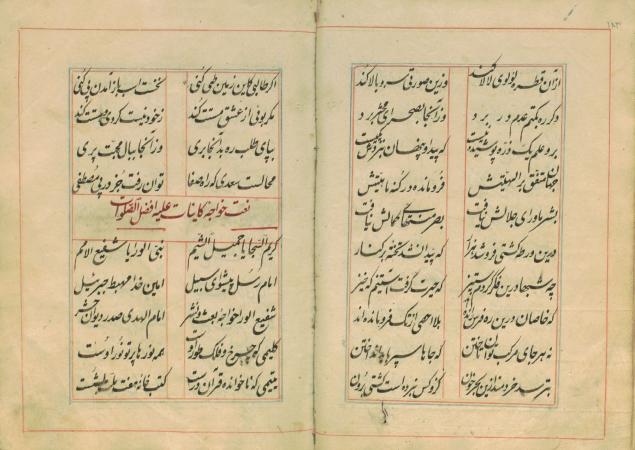 ۱۸۳
ازآن قطره لولوی لالا کند وزین صورتی سرو بالا کند
دگر ره بکتم عدم در برد وزآنجا بصحرای محشر برد
برو علم یک ذره پوشیده نیست که پیدا و پنهان بنزدش یکیست
جهان متفق بر الهیتش فرومانده در کنه ماهیتش
بشر ماورای جلالش نیافت بصر منتهای کمالش نیافت
درین ورطه کشتی فروشد هزار که پیدا نشد تخته بر کنار
چه شبها درین فکر کردم ستیز که حیرت گرفت آستینم که خیز
که خاصان درین ره فرس رانده اند بلا احصی از تک فرومانده اند
نه هر جای مرکب توان تاختن که جاها سپر باید انداختن
بترسد خردمند ازین بحر خون کزو کس نبرده است کشتی برون
اگر طالبی کاین زمین طی کنی نخست اسب باز آمدن پی کنی
مگر بوئی از عشق مستت کند زخود نیست کردی و هستت کند
بپای طلب ره بدانجا بری وزآنجا ببال محبت پری
محالست سعدی که راه صفا توان رفت جز در پی مصطفی
نعت خواجه کاینات علیه افضل الصلوات
کریم السجایا جمیل الشیم نبی الورا شفیع الامم
امام رسل پیشوای سبیل امین خدا مهبط جبرئیل
شفیع الورا خواجه بعث و نشر امام الهدی صدر دیوان حشر
کلیمی که چرخ و فلک طور اوست همه نورها پرتو نور اوست
یتیمی که ناخوانده قرآن درست کتب خانه هفت ملت بشست